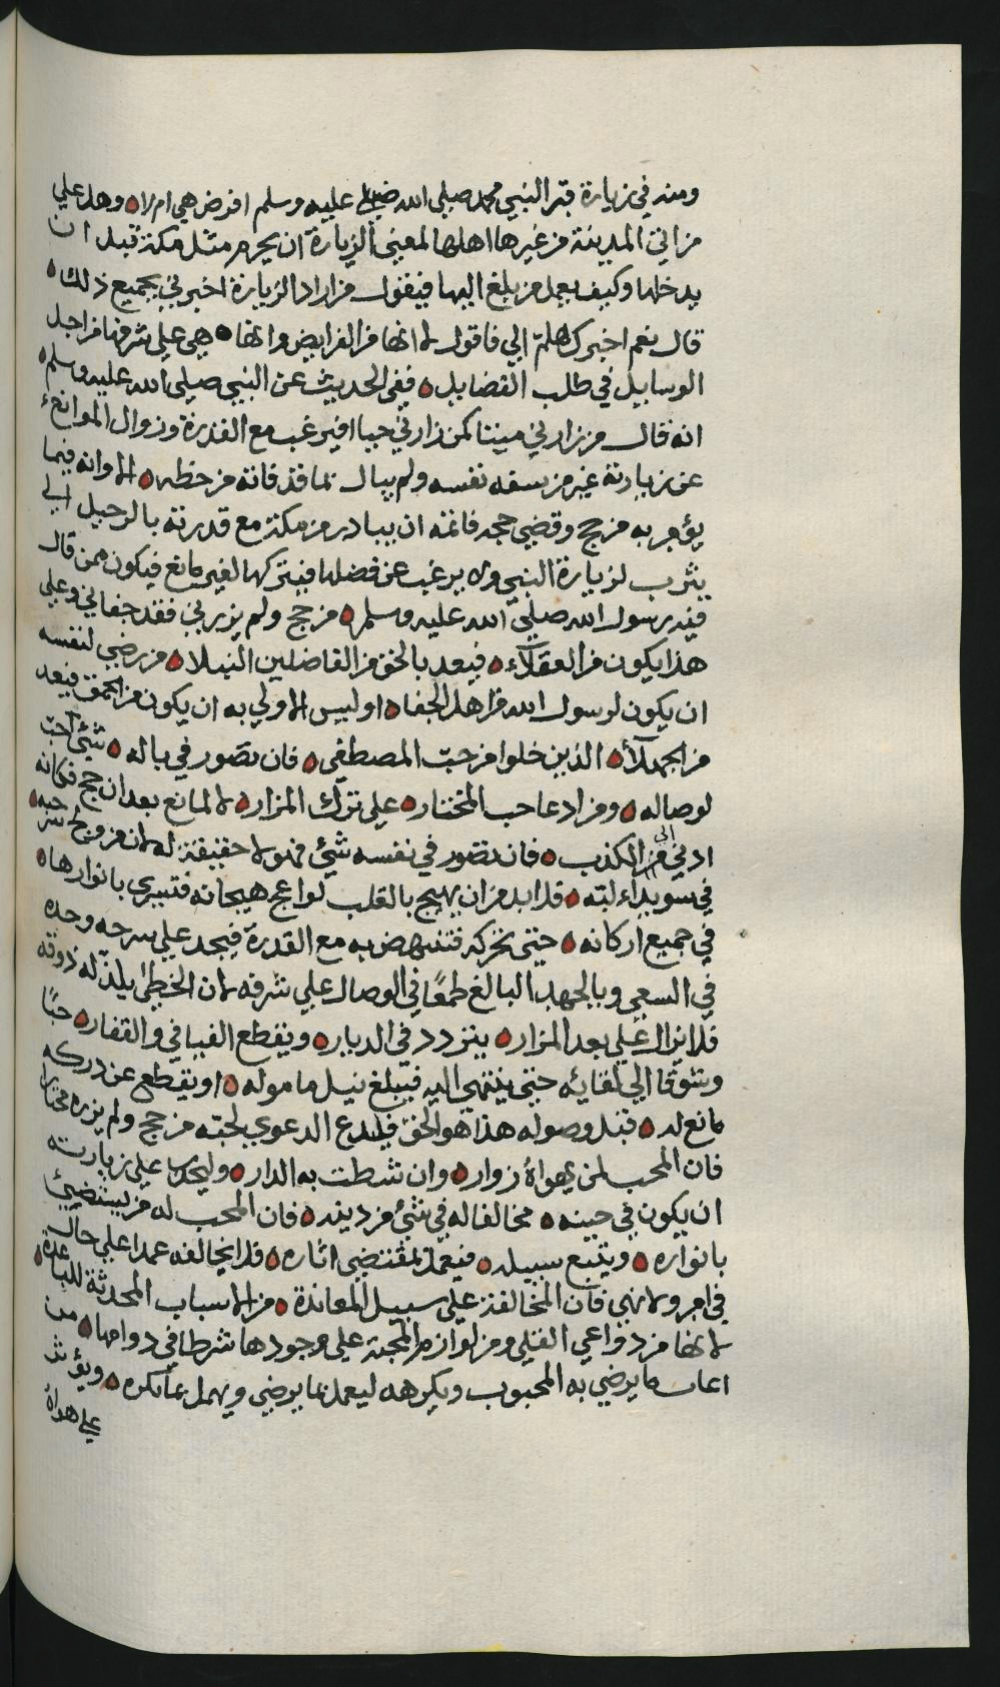 ومنه في زيارة قبر النبي محمد صلى الله عليه وسلم افرض هي ام لا وهل علي
من اتى المدينة من غيرها اهلها لمعنى الزيارة ان يحرم مثل مكة قبل ان
يدخلها وكيف يعمل من بلغ اليها فيقول من اراد الزيارة اخبرني بجميع ذلك
قال نعم اخبرك هلم الي فاقول لا انها من الفرايض وانها هي علي شرفها من اجل
الوسايل في طلب الفضايل ففي الحديث عن النبي صلي الله عليه وسلم
انه قال من زارني ميتا كمن زارني حيا افيرغب مع القدرة وزوال الموانع
عن زيارته غير من سفه نفسه ولم يبال بما قد فاته من حظه الا وانه فيما
يؤمر به من حج وقضي حجه فاتمه ان يبادر من مكة مع قدرته بالرحيل الي
يثرب لزيارة النبي ولا يرغب عن فضلها فيتركها لغير مانع فيكون ممن قال
فيه رسول الله صلي الله عليه وسلم من حج ولم يزرني فقد جفاني وعلي
هذا يكون من العقلاء فيعد بالحق من الفاضلين النبلا من رضي لنفسه
ان يكون لرسول الله من اهل الجفا او ليس الاولي به ان يكون من الحمق فيعد
من الجهلاء الذين خلوا من حب المصطفي فان تصور في باله شيئ احب
لوصاله ومن ادعا حب المختار علي ترك المزار لا لمانع بعد ان حج فكانه
ادني الى الكذب فان تصور في نفسه شيئ فهو لا حقيقة له لان من ولج سر حبه
في سويداء لبه فلا بد من ان يهيج بالقلب لواعج هيجانه فتسري بانوارها
في جميع اركانه حتى تحركه فتنهض به مع القدرة فيجد علي سرحه وحده
في السعي وبالجهد البالغ طمعا في الوصال علي شرفه لان الخطا يلذ له ذوقه
فلا يزال علي بعد المزار يتردد في الديار ويقطع الفيافي والقفار حبا
وشوقا الي لقائه حتى ينتهي اليه فيبلغ نيل ماموله او يقطع عن دركه
مانع له قبل وصوله هذا هو الحق فليدع الدعوي لحبه من حج ولم يزره مختارا
فان المحب لمن يهواه زوار وان شطت به الدار وليحذر علي زيارته
ان يكون في حينه مخالفا له في شئ من دينه فان المحب له من يستضيئ
بانواره ويتبع سبيله فيعمل بمقتضي اثاره فلا يخالفه عمدا علي حال
في امر ولا نهي فان المخالفة علي سبيل المعاندة من الاسباب المحدثة للمباعدة
لانها من دواعي القلي ومن لوازم المحبة علي وجودها شرطا في دوامها من
اعات ما يرضي به المحبوب ويكرهه ليعمل بما يرضي ويهمل ما يكره ويؤثر
علي هواه